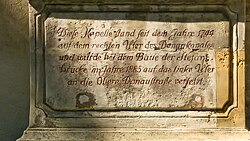 Diese Kapelle stand seit dem Jahre 1744
auf dem rechten Ufer des Donaukanales
und wurde bei dem Baue der Stefanie-
brücke im Jahre 1885 auf das linke Ufer
an die Obere Donaustraße versetzt.